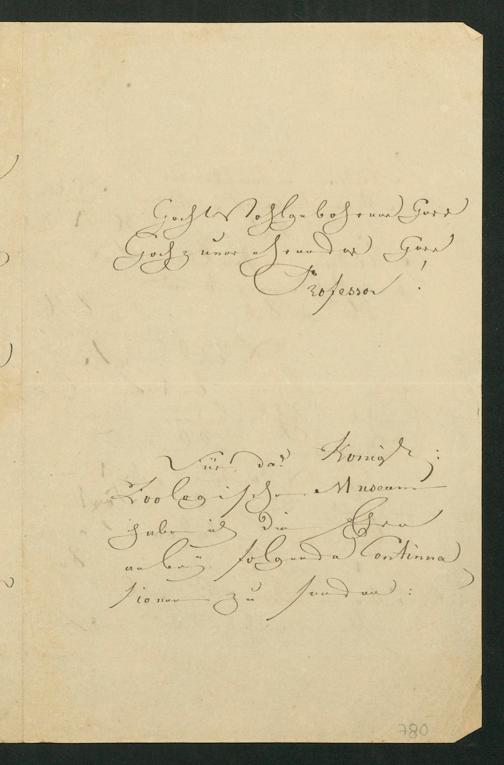 Hochwohlgebohrner Herr
Hochzuverehrender Herr
Professor!
Für das Königl:
Zoologische Museum
habe ich die Ehre
anbey folgende Continua
sionen zu senden:
780